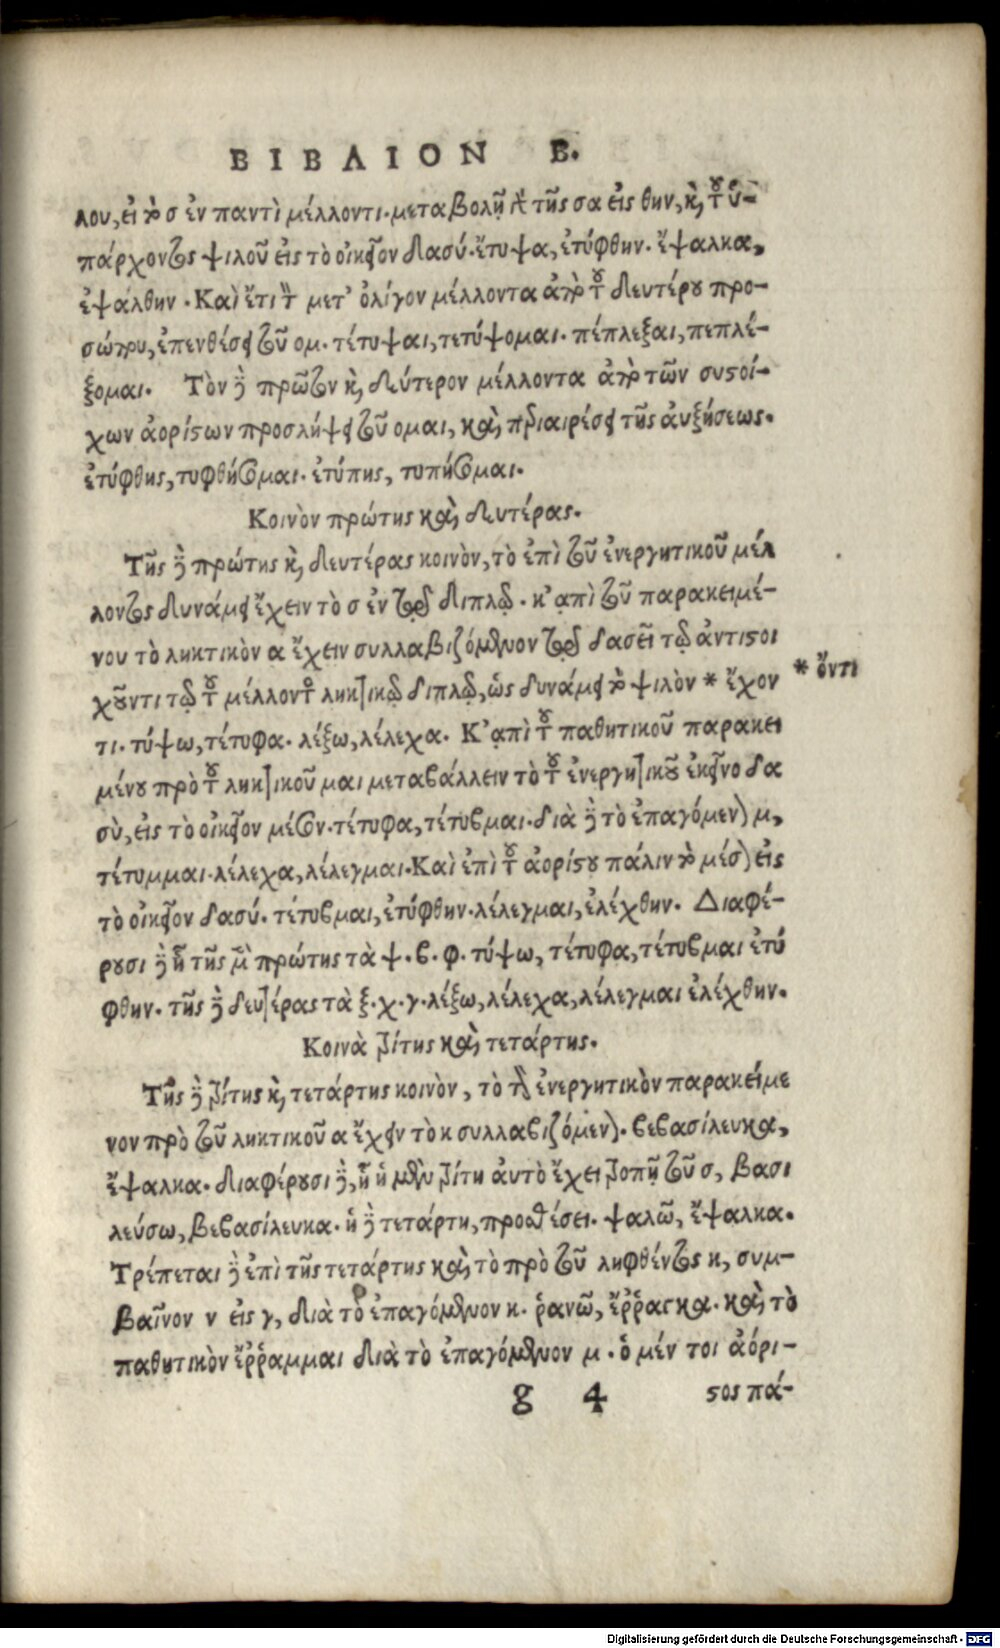 ΒΙΒΛΙΟΝ Β.
λου, εἰ τὸ σ ἐν παντὶ μέλλοντι. μεταβολῇ δὲ τῆς σα εἰς θην, καὶ τοῦ ὑ-
πάρχοντος ψιλοῦ εἰς τὸ οἰκεῖον δασύ. ἔτυψα, ἐτύφθην. ἔψαλκα,
ἐψάλθην. Καὶ ἔτι τὸν μετ' ὀλίγον μέλλοντα ἀπὸ τοῦ δευτέρου προ-
σώπου, ἐπενθέσει τοῦ ομ. τέτυψαι, τετύψομαι. πέπλεξαι, πεπλέ-
ξομαι. Τὸν δὲ πρῶτον καὶ δεύτερον μέλλοντα ἀπὸ τῶν συστοί-
χων ἀορίστων προσλήψει τοῦ ομαι, καὶ διαιρέσει τῆς αὐξήσεως.
ἐτύφθης, τυφθήσομαι. ἐτύπης, τυπήσομαι.
Κοινὸν πρώτης καὶ δευτέρας.
Τῆς δὲ πρώτης καὶ δευτέρας κοινὸν, τὸ ἐπὶ τοῦ ἐνεργητικοῦ μέλ
λοντος δυνάμει ἔχειν τὸ σ ἐν τῷ διπλῷ. κἀπὶ τοῦ παρακειμέ-
νου τὸ ληκτικὸν α ἔχειν συλλαβιζόμενον τῷ δασεῖ τῷ ἀντιστοι
χοῦντι τῷ τοῦ μέλλοντος ληκτικῷ διπλῷ, ὡς δυνάμει τὸ ψιλὸν * ἔχον
τι. τύψω, τέτυφα. λέξω, λέλεχα. Κἀπὶ τοῦ παθητικοῦ παρακει
μένου πρὸ τοῦ ληκτικοῦ μαι μεταβάλλειν τὸ τοῦ ἐνεργητικοῦ ἐκεῖνο δα
σὺ, εἰς τὸ οἰκεῖον μέσον. τέτυφα, τέτυβμαι. διὰ δὲ τὸ ἐπαγόμενον μ,
τέτυμμαι. λέλεχα, λέλεγμαι. Καὶ ἐπὶ τοῦ ἀορίστου πάλιν τὸ μέσον εἰς
τὸ οἰκεῖον δασύ. τέτυβμαι, ἐτύφθην. λέλεγμαι, ἐλέχθην. Διαφέ-
ρουσι δὲ ᾗ τῆς μὲν πρώτης τὰ ψ. β. φ. τύψω, τέτυφα, τέτυβμαι ἐτύ
φθην. τῆς δὲ δευτέρας τὰ ξ. χ. γ. λέξω, λέλεχα, λέλεγμαι ἐλέχθην.
Κοινὰ τρίτης καὶ τετάρτης.
Τῆς δὲ τρίτης καὶ τετάρτης κοινὸν, τὸ τὸν ἐνεργητικὸν παρακείμε
νον πρὸ τοῦ ληκτικοῦ α ἔχειν τὸ κ συλλαβιζόμενον. βεβασίλευκα,
ἔψαλκα. διαφέρουσι δὲ, ᾗ ἡ μὲν τρίτη αὐτὸ ἔχει τροπῇ τοῦ σ, βασι
λεύσω, βεβασίλευκα. ἡ δὲ τετάρτη, προσθέσει. ψαλῶ, ἔψαλκα.
Τρέπεται δὲ ἐπὶ τῆς τετάρτης καὶ τὸ πρὸ τοῦ ληφθέντος κ, συμ-
βαῖνον ν εἰς γ, διὰ τὸ ἐπαγόμενον κ. ῥανῶ, ἔῤῥαγκα. καὶ τὸ
παθητικὸν ἔῤῥαμμαι διὰ τὸ ἐπαγόμενον μ. ὁ μέν τοι ἀόρι-
g 4 στος πά-
* ὄντι
Digitalisierung gefördert durch die Deutsche Forschungsgemeinschaft - DFG